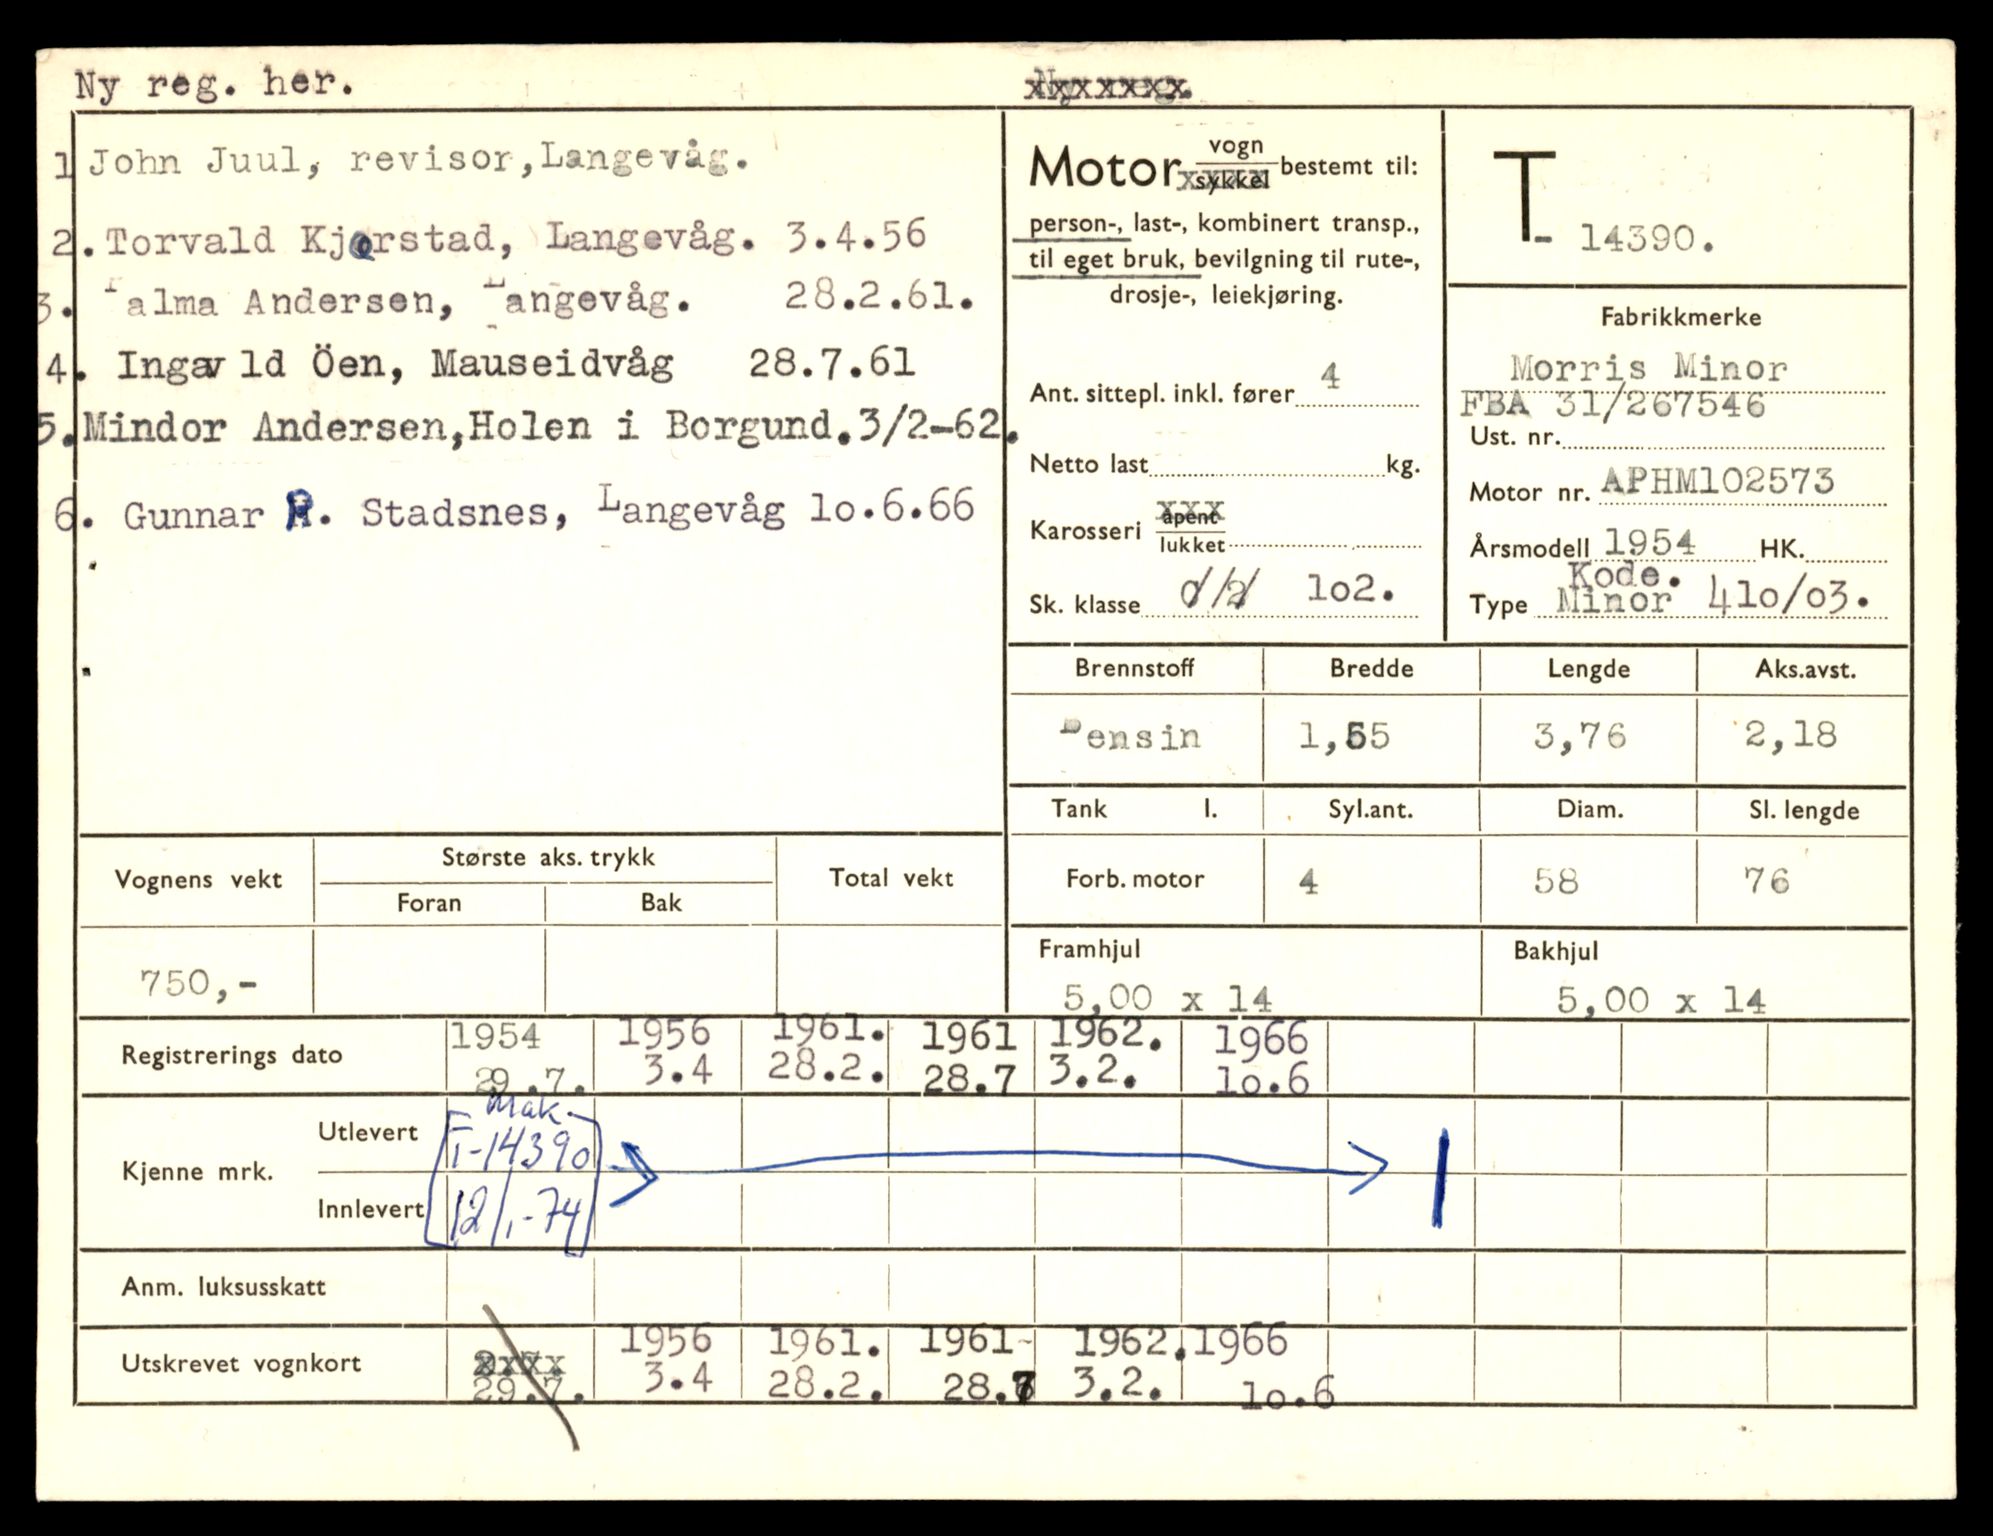 Ny reg. her.
1 John Juul, revisor, Langevåg.
2. Torvald Kjørstad, Langevåg. 3.4.56
3. Palma Andersen, Langevåg. 28.2.61.
4. Ingavld Öen, Mauseidvåg 28.7.61
5. Mindor Andersen, Holen i Borgund. 3/2-62.
6. Gunnar R. Stadsnes, Langevåg 1o.6.66
Motor vogn/sykkel bestemt til:
person-, last-, kombinert transp.,
til eget bruk, bevilgning til rute-,
drosje-, leiekjøring.
Ant. sittepl. inkl. fører 4
Netto last kg.
Karosseri åpent/lukket
Sk. klasse 1o2.
T- 14390.
Fabrikkmerke
Morris Minor
FBA 31/267546
Ust. nr.
Motor nr. APHM102573
Årsmodell 1954 HK.
Kode.
Type Minor 41o/o3.
Brennstoff Bredde Lengde Aks.avst.
Bensin 1,55 3,76 2,18
Tank l. Syl.ant. Diam. Sl. lengde
Forb. motor 4 58 76
Framhjul Bakhjul
5,00 x 14 5,00 x 14
Vognens vekt Største aks. trykk Total vekt
Foran Bak
750,-
1954 1956 1961. 1961 1962. 1966
Registrerings dato 29.7. 3.4 28.2. 28.7 3.2. 1o.6
Mak.
Kjenne mrk. Utlevert T-14390
Innlevert 12/1-74
Anm. luksusskatt
1956 1961. 1961 1962. 1966
Utskrevet vognkort 29.7. 3.4 28.2. 28.7 3.2. 1o.6